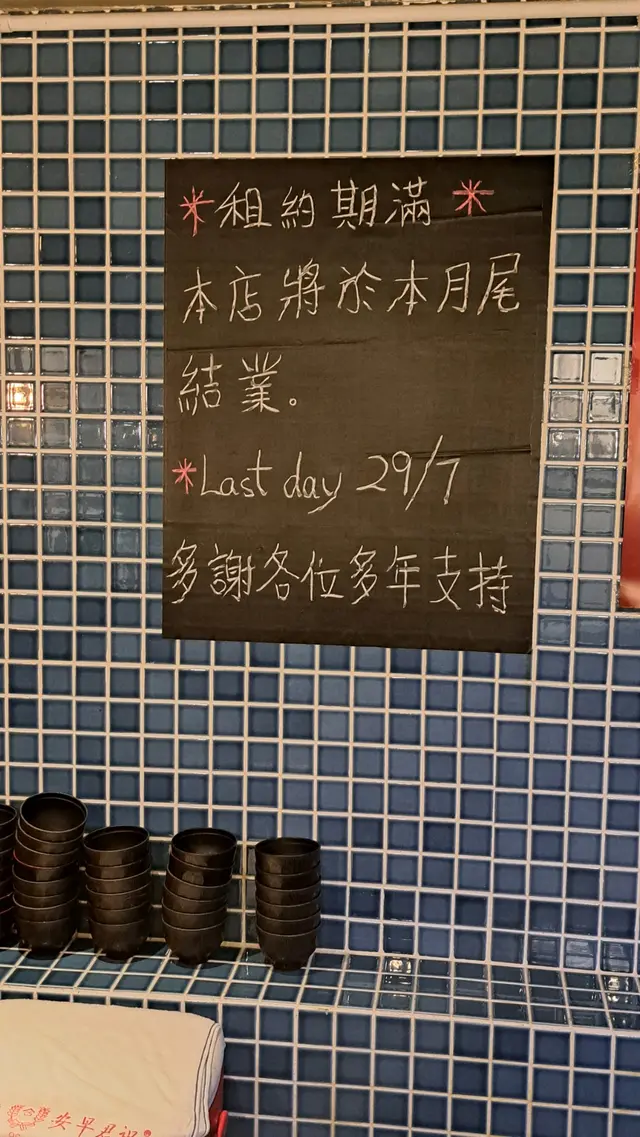 *租約期滿*
本店將於本月尾
結業。
*Last day 29/7
多謝各位多年支持